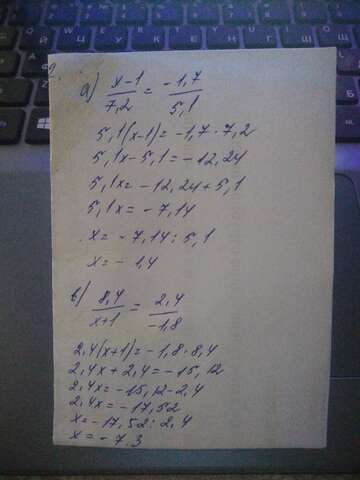 а) x-1/7,2 = -1,7/5,1
5,1(x-1)=-1,7·7,2
5,1x-5,1=-12,24
5,1x=-12,24+5,1
5,1x=-7,14
x=-7,14:5,1
x=-1,4
в) 8,4/x+1 = 2,4/-1,8
2,4(x+1)=-1,8·8,4
2,4x+2,4=-15,12
2,4x=-15,12-2,4
2,4x=-17,52
x=-17,52:2,4
x=-7.3